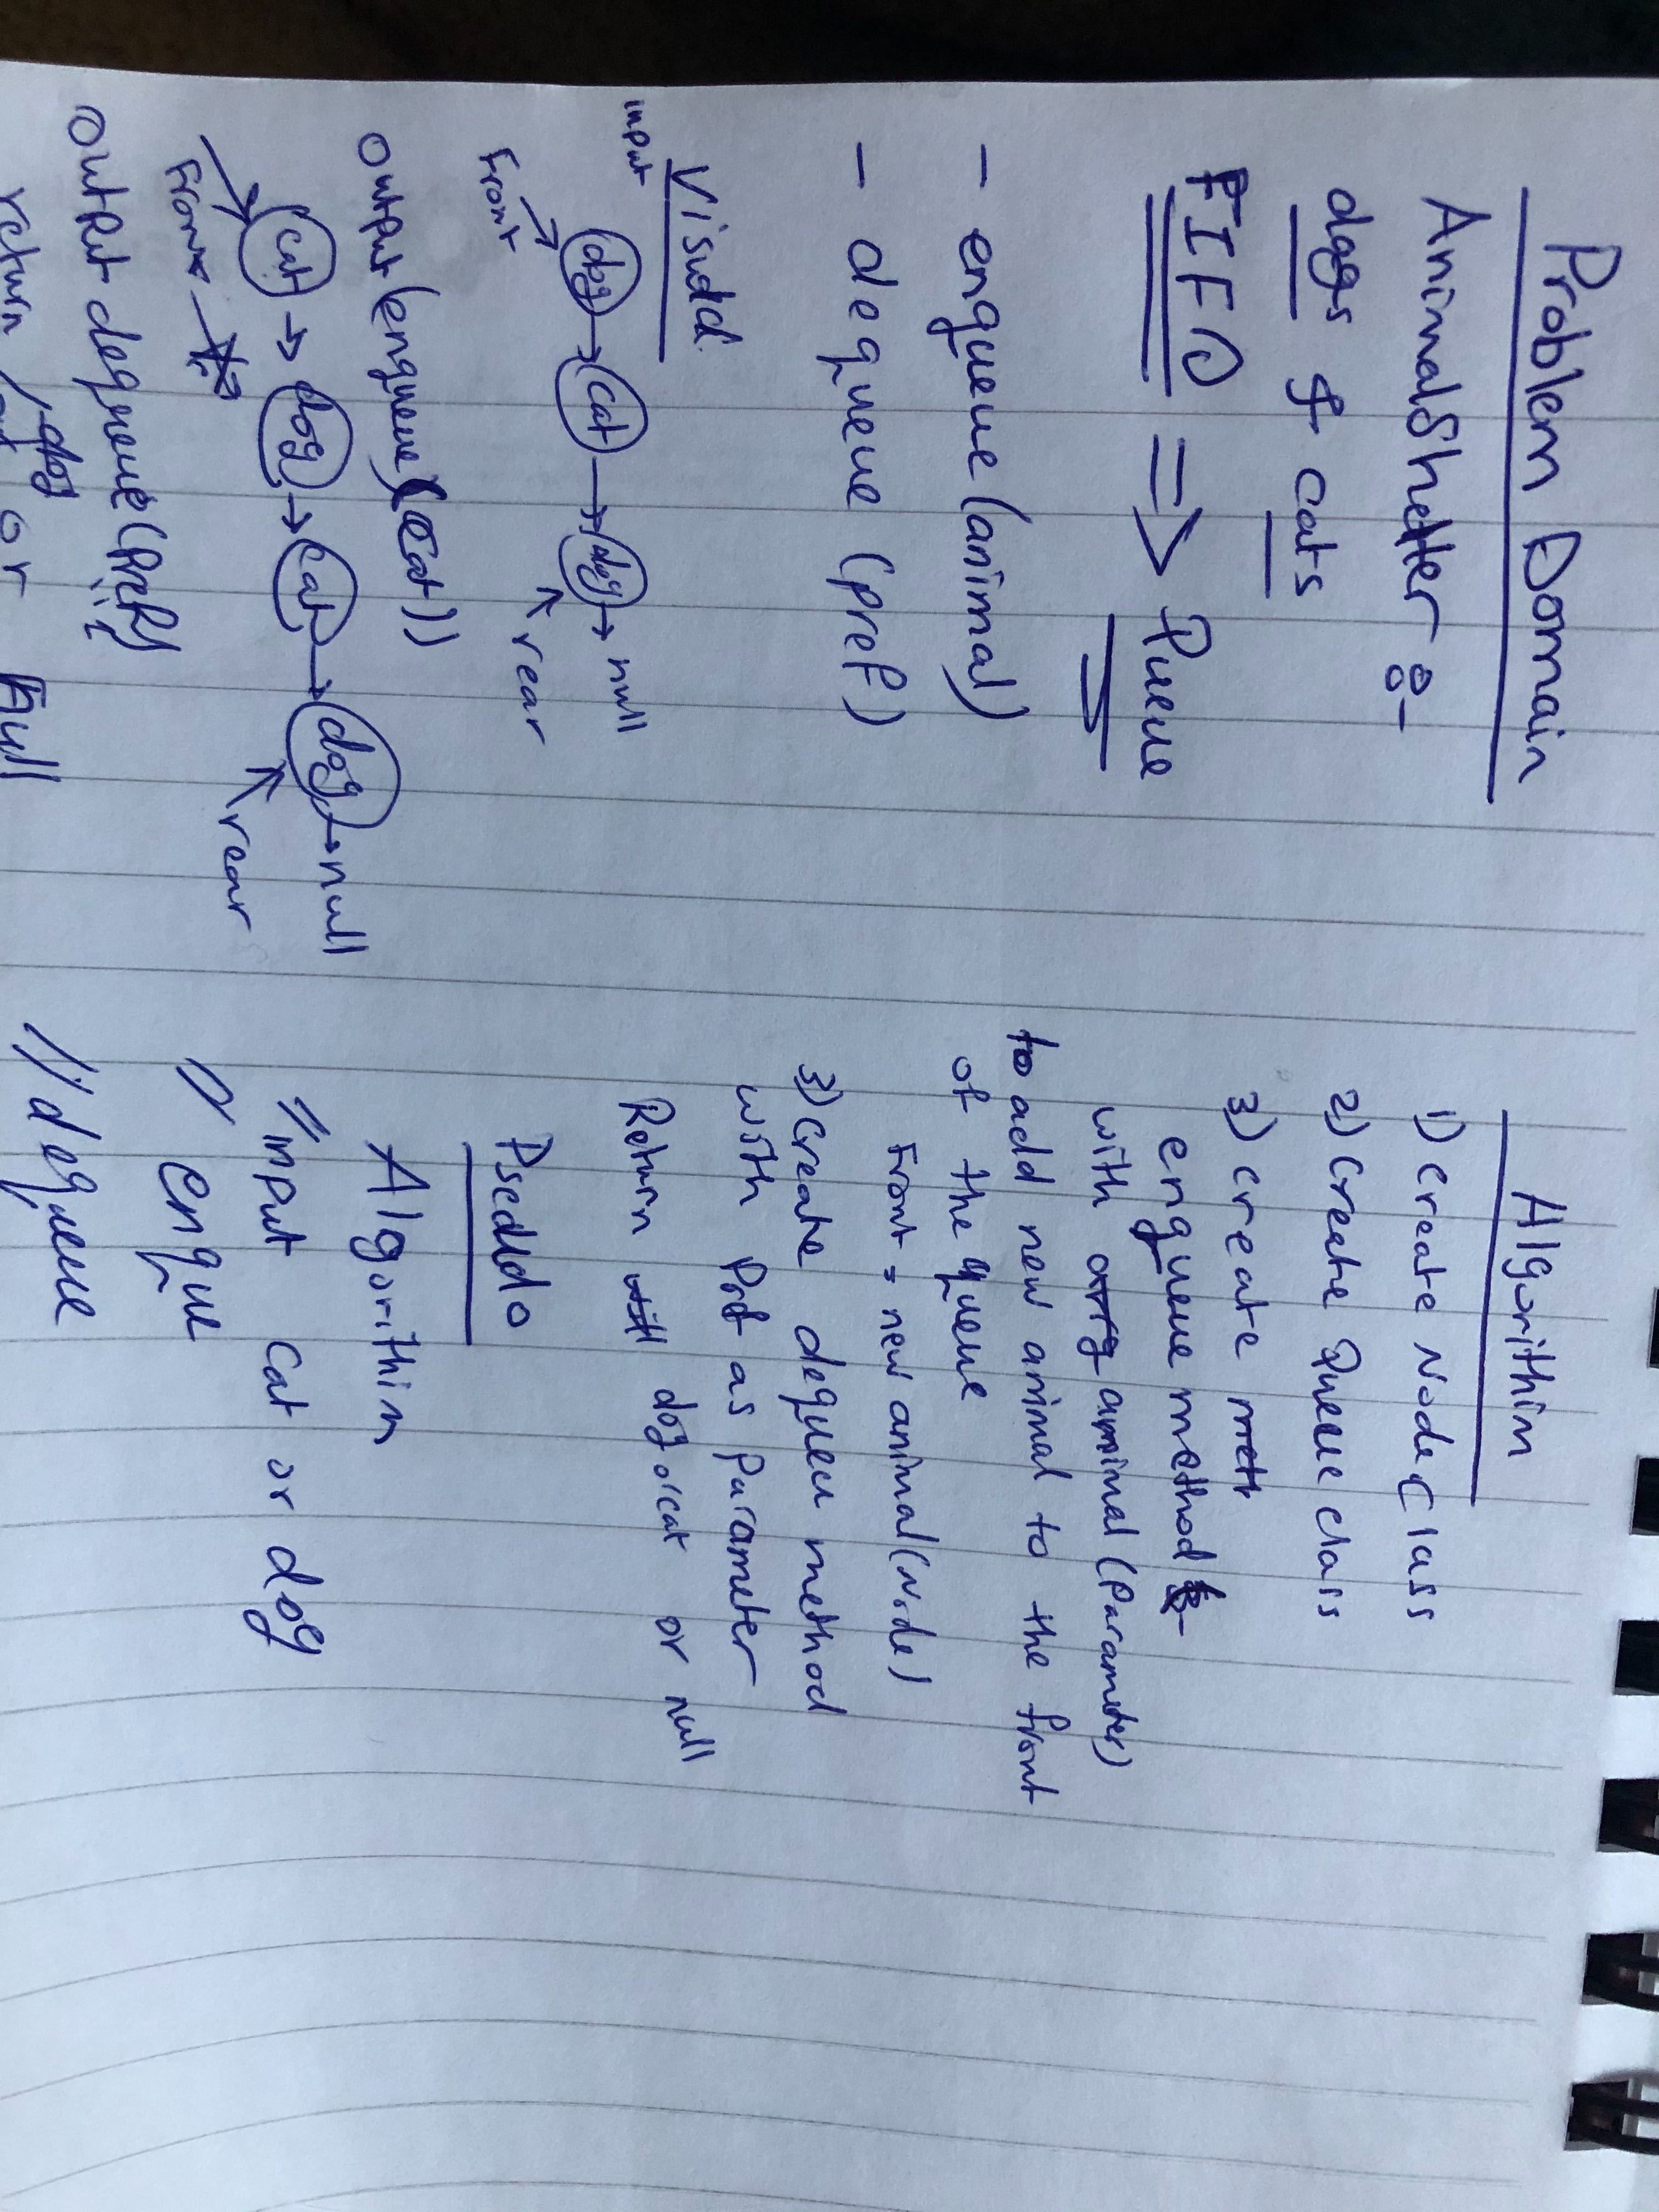 Problem Domain
AnimalShelter :-
dogs & cats
FIFO => Queue
- enqueue (animal)
- dequeue (pref)
Visual
input
dog → cat → dog → null
Front
rear
output (enqueue (cat))
cat → dog → cat → dog → null
Front
rear
output dequeue (pref)
return / or null
Algorithim
1) create node class
2) create Queue class
3) create
enqueue method
with animal (Parameter)
to add new animal to the front
of the queue
Front = new animal (node)
3) create dequeu method
with Pref as parameter
Return dog or cat or null
Pseudo
Algorithim
// input cat or dog
// enque
// dequeue